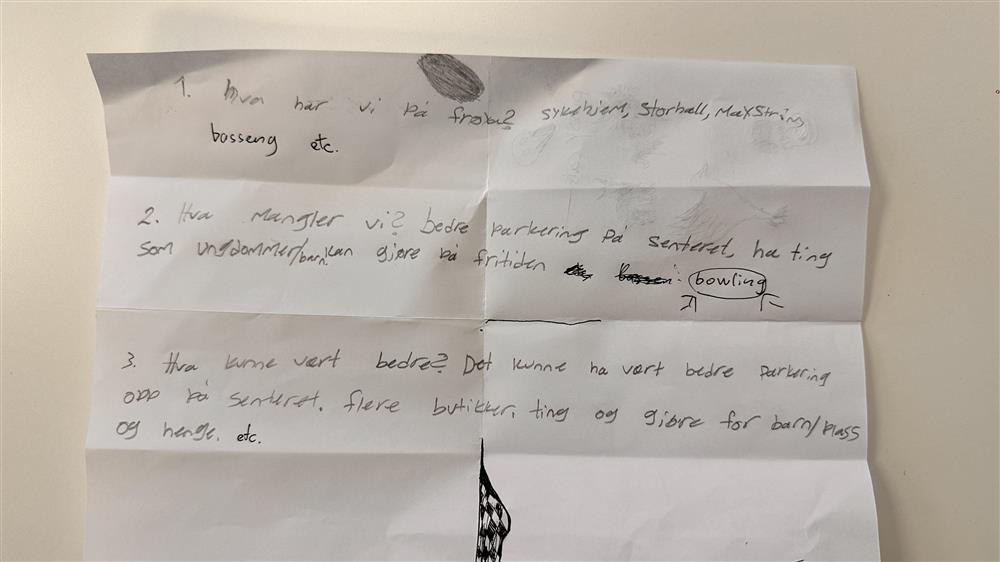 1. Hva har vi på frøya? sykehjem, Storhall, MaxStrim
basseng etc.
2. Hva mangler vi? bedre parkering på senteret, ha ting
som ungdommer/barn kan gjøre på fritiden bowling
3. Hva kunne vært bedre? Det kunne ha vært bedre parkering
opp på senteret. flere butikker, ting og gjøre for barn/plass
og henge. etc.